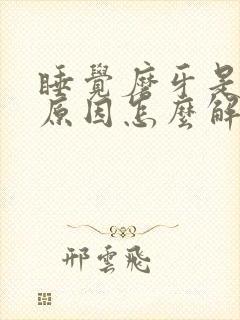 睡覺磨牙是
原因怎麼解
邢雲飛